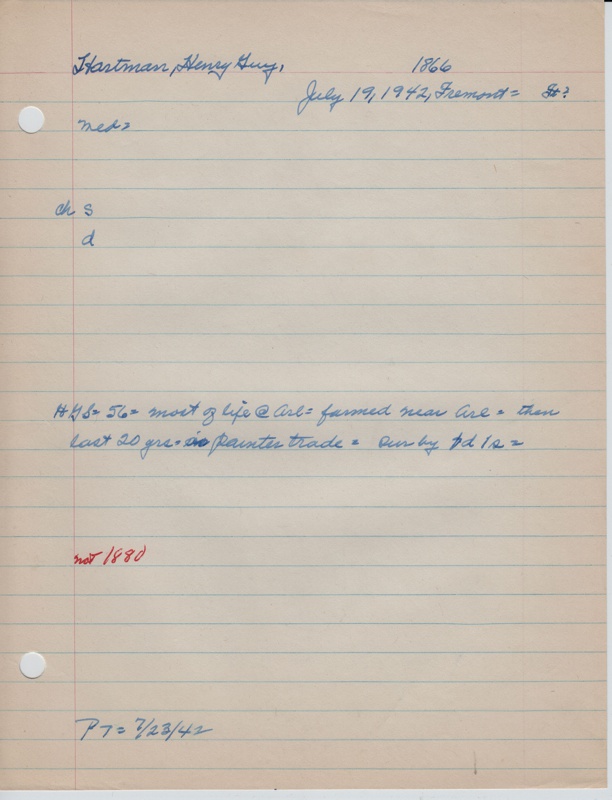 Hartman, Henry Guy, 1866
July 19, 1942, Fremont =
Med =
ch s
d
= 56 = most of life @ Arl = farmed near Arl = then
last 20 yrs = in painter trade = sur by 1d 1s =
not 1880
PT = 7/23/42